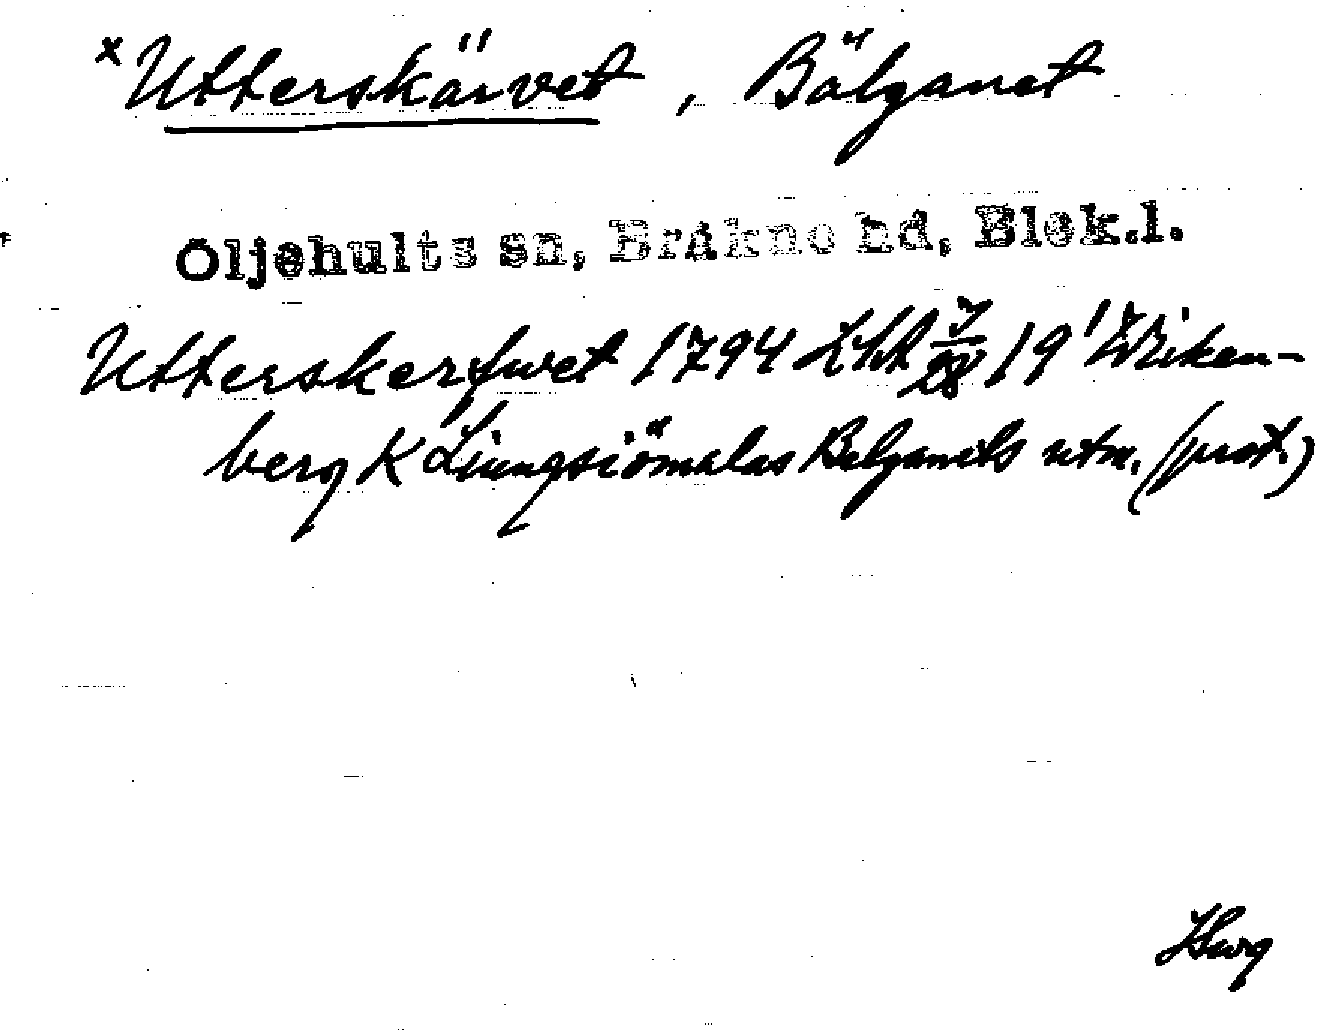 x Utterskärvet, Bälganet
Öljehults sn, Bräkne hd, Blek.l.
Utterskerfwet 1794 19 Wriken-
berg K Liungsiömalas Belganets utm. (prot.)